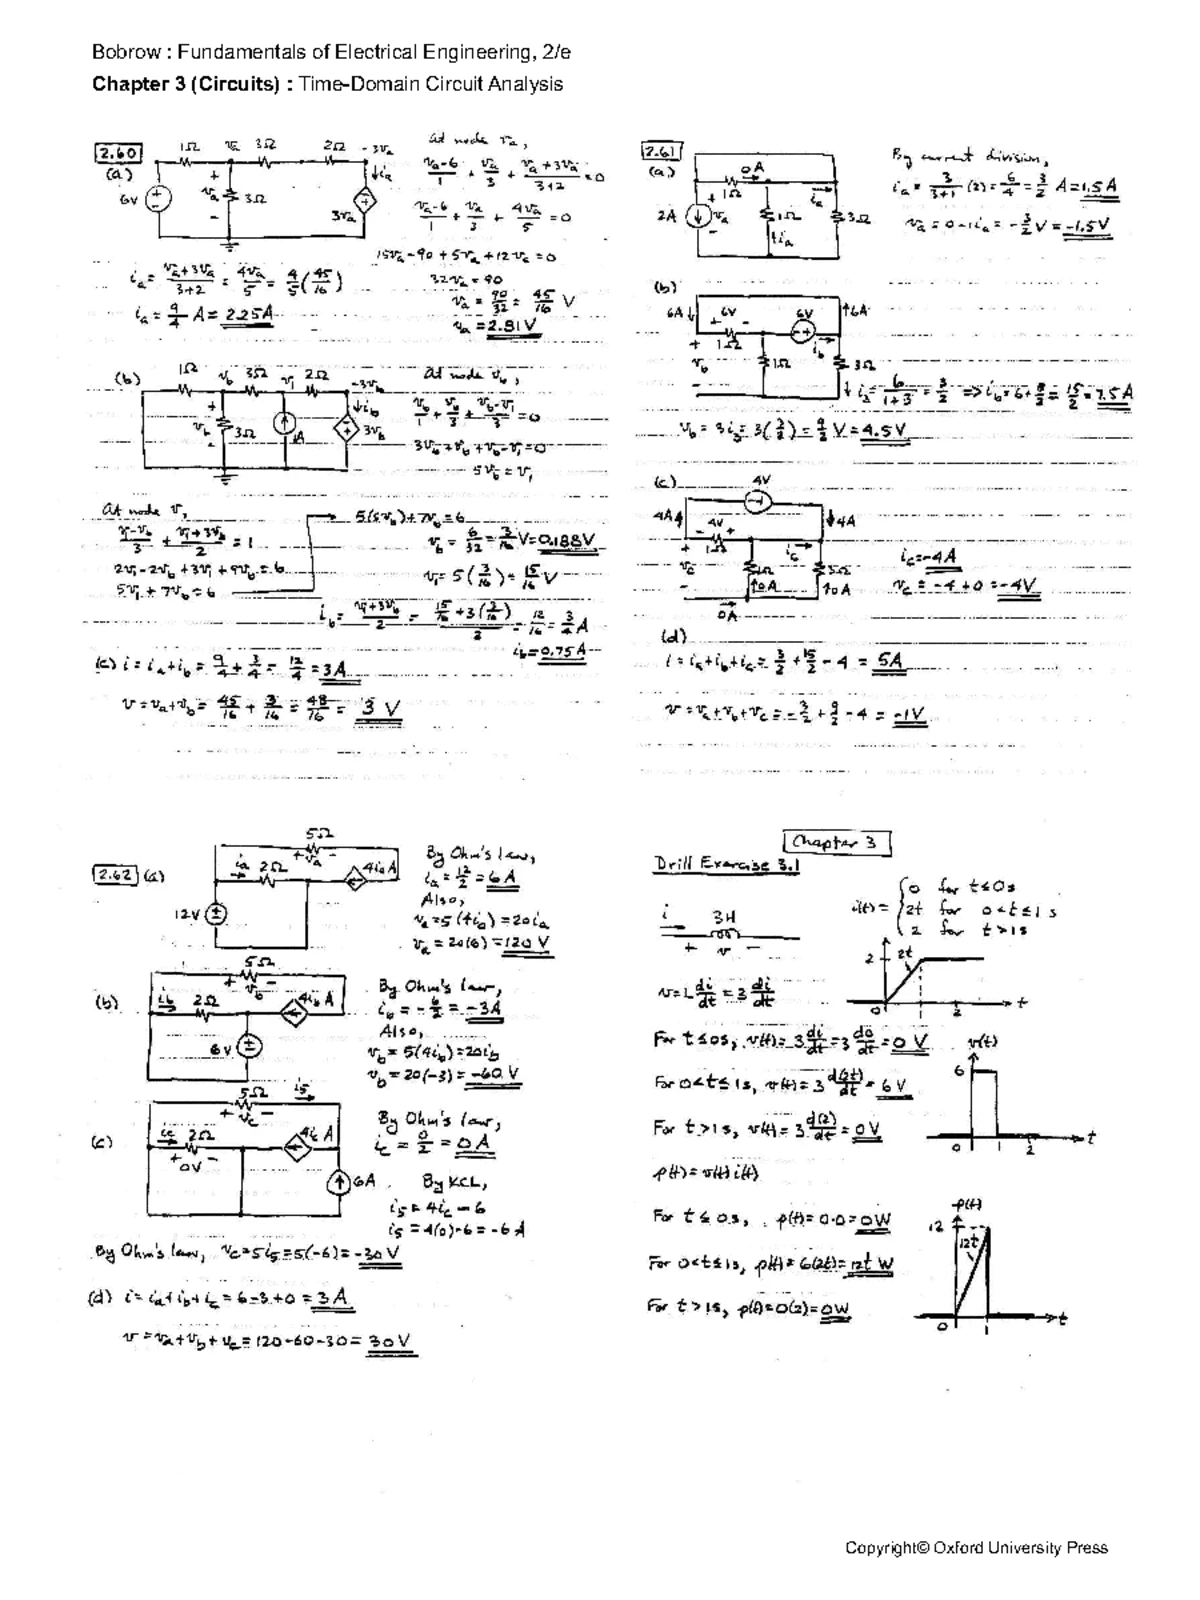 Bobrow : Fundamentals of Electrical Engineering, 2/e
Chapter 3 (Circuits) : Time-Domain Circuit Analysis
2.60
(a)
1Ω va 3Ω 2Ω -3va
6V
+ va - 3Ω
ia
3va
At node va,
(va-6)/1 + va/3 + (va+3va)/(3+2) = 0
(va-6)/1 + va/3 + 4va/5 = 0
15va - 90 + 5va + 12va = 0
32va = 90
va = 90/32 = 45/16 V
va = 2.81 V
ia = (va+3va)/(3+2) = 4va/5 = 4/5 (45/16)
ia = 9/4 A = 2.25A
(b)
1Ω vb 3Ω v1 2Ω -3vb
+ vb - 3Ω
1A
ib
3vb
At node vb,
vb/1 + vb/3 + (vb-v1)/3 = 0
3vb + vb + vb - v1 = 0
5vb = v1
At node v1
(v1-vb)/3 + (v1+3vb)/2 = 1
2v1 - 2vb + 3v1 + 9vb = 6
5v1 + 7vb = 6
5(5vb) + 7vb = 6
vb = 6/32 = 3/16 V = 0.188V
v1 = 5(3/16) = 15/16 V
ib = (v1+3vb)/2 = (15/16 + 3(3/16))/2 = 12/16 = 3/4 A
ib = 0.75A
(c) i = ia + ib = 9/4 + 3/4 = 12/4 = 3A
v = va + vb = 45/16 + 3/16 = 48/16 = 3 V
2.61
(a)
0A
1Ω
2A
+ va -
1Ω
ia
3Ω
ia
By current division,
ia = 3/(3+1) (2) = 6/4 = 3/2 A = 1.5A
va = 0 - 1ia = -3/2 V = -1.5V
(b)
6A + 6V - 6V 6A
1Ω
+ vb -
1Ω
ib
3Ω
i3 = 6/(1+3) = 3/2 => ib = 6 + 3/2 = 15/2 = 7.5 A
vb = 3i3 = 3(3/2) = 9/2 V = 4.5V
(c)
4V
4A
4A
- 4V +
1Ω
+ vc -
ic
1Ω
3Ω
0A
0A
0A
ic = -4A
vc = -4 + 0 = -4V
(d)
i = ia + ib + ic = 3/2 + 15/2 - 4 = 5A
v = va + vb + vc = -3/2 + 9/2 - 4 = -1V
2.62 (a)
5Ω
+ va -
ia 2Ω
4ia A
12V
By Ohm's law,
ia = 12/2 = 6A
Also,
va = 5(4ia) = 20ia
va = 20(6) = 120 V
(b)
5Ω
+ vb -
ib 2Ω
4ib A
6V
By Ohm's law,
ib = -6/2 = -3A
Also,
vb = 5(4ib) = 20ib
vb = 20(-3) = -60 V
(c)
5Ω i5
+ vc -
ic 2Ω
4ic A
+ 0V -
6A
By Ohm's law,
ic = 0/2 = 0A
By KCL,
i5 = 4ic - 6
i5 = 4(0) - 6 = -6A
By Ohm's law, vc = 5i5 = 5(-6) = -30V
(d) i = ia + ib + ic = 6 - 3 + 0 = 3A
v = va + vb + vc = 120 - 60 - 30 = 30V
Chapter 3
Drill Exercise 3.1
i 3H
+ v -
i(t) = { 0 for t ≤ 0s
2t for 0 < t ≤ 1s
2 for t > 1s
2 2t
0 2 t
v = L di/dt = 3 di/dt
For t ≤ 0s, v(t) = 3 di/dt = 3 d0/dt = 0 V
For 0 < t ≤ 1s, v(t) = 3 d(2t)/dt = 6 V
For t > 1s, v(t) = 3 d(2)/dt = 0V
v(t)
6
0 1 2 t
p(t) = v(t) i(t)
For t ≤ 0s, p(t) = 0·0 = 0W
For 0 < t ≤ 1s, p(t) = 6(2t) = 12t W
For t > 1s, p(t) = 0(2) = 0W
p(t)
12
12t
0 1 t
Copyright© Oxford University Press